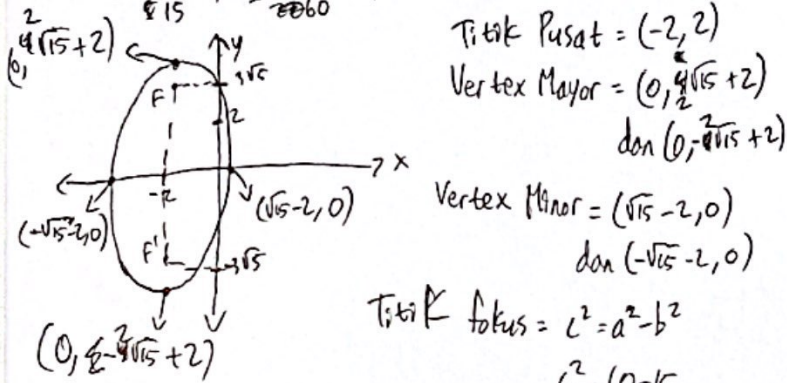 15
60
(0, 2√15+2)
y
3√5
F
2
x
-2
(√15-2, 0)
(-√15-2, 0)
F'
-3√5
(0, -2√15+2)
Titik Pusat = (-2, 2)
Vertex Mayor = (0, 2√15+2)
dan (0, -2√15+2)
Vertex Minor = (√15-2, 0)
dan (-√15-2, 0)
Titik fokus = c²=a²-b²